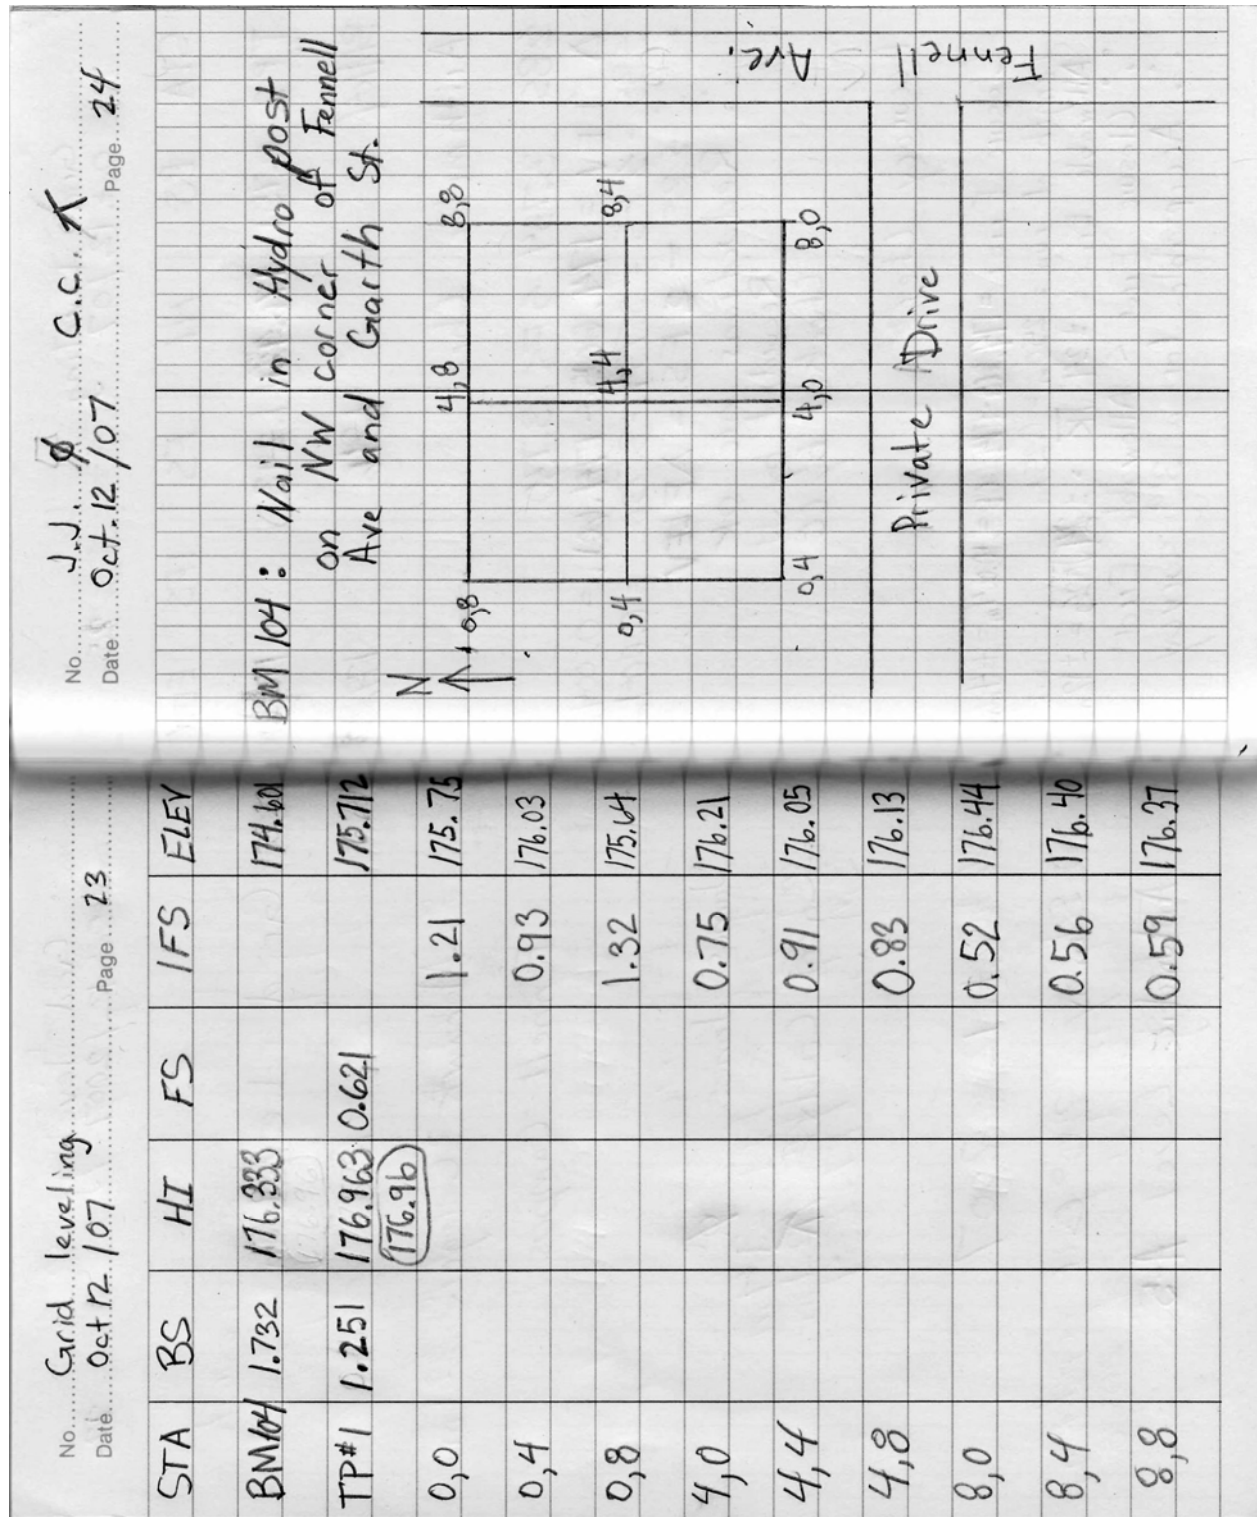 No. Grid leveling
Date Oct 12 /07 Page 23
STA BS HI FS IFS ELEV
BM104 1.732 176.333 174.601
TP#1 1.251 176.963 0.621 175.712
176.96
0,0 1.21 175.75
0,4 0.93 176.03
0,8 1.32 175.64
4,0 0.75 176.21
4,4 0.91 176.05
4,8 0.83 176.13
8,0 0.52 176.44
8,4 0.56 176.40
8,8 0.59 176.37
No. J.J. C.C.
Date Oct. 12 /07 Page 24
BM 104: Nail in Hydro post
on NW corner of Fennell
Ave and Garth St.
N
0,8 4,8 8,8
0,4 4,4 8,4
0,4 4,0 8,0
Private Drive
Fennell Ave.